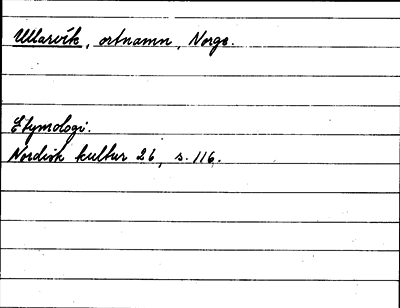 Ullarvík, ortnamn, Norge.
Etymologi.
Nordisk kultur 26, s. 116.